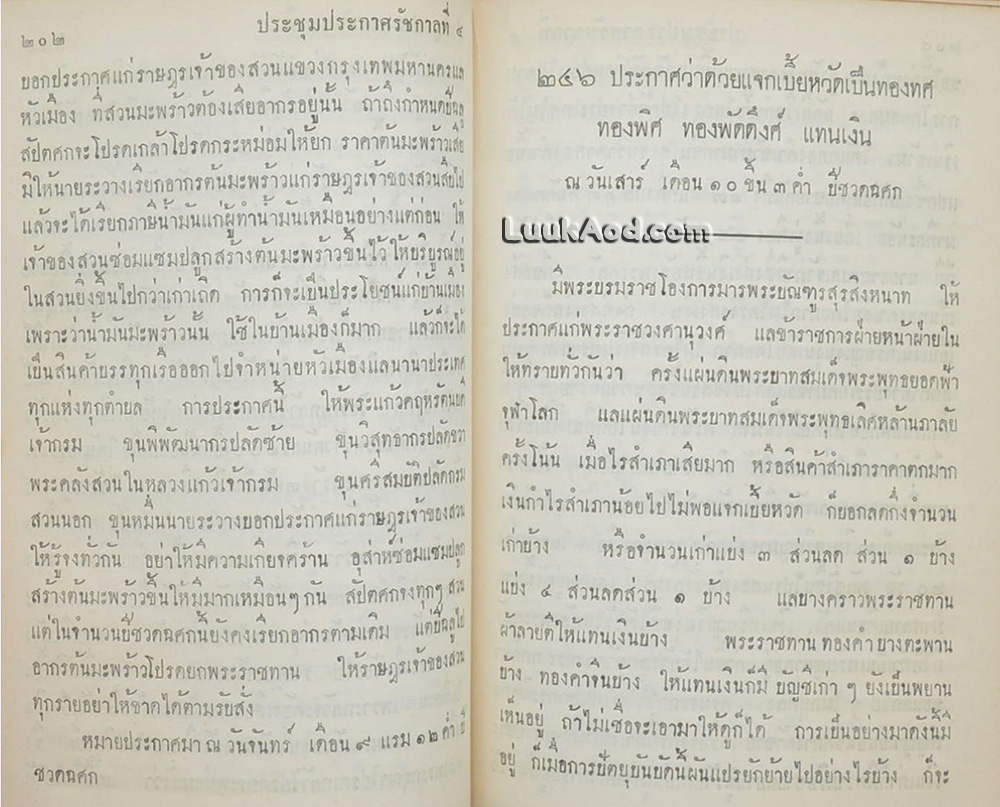 ๒๐๒
ประชุมประกาศรัชกาลที่ ๔
บอกประกาศแก่ราษฎรเจ้าของสวนแขวงกรุงเทพมหานครแล
หัวเมือง ที่สวนมะพร้าวต้องเสียอากรอยู่นั้น ถ้าถึงกำหนดปีฉลู
สัปตศกจะโปรดเกล้าโปรดกระหม่อมให้ยก ราคาต้นมะพร้าวเสีย
มิให้นายระวางเรียกอากรต้นมะพร้าวแก่ราษฎรเจ้าของสวนสืบไป
แล้วจะได้เรียกภาษีน้ำมันแก่ผู้ทำน้ำมันเหมือนอย่างแต่ก่อน ให้
เจ้าของสวนซ่อมแซมปลูกสร้างต้นมะพร้าวขึ้นไว้ให้บริบูรณ์อยู่
ในสวนยิ่งขึ้นไปกว่าเก่าเถิด การก็จะเป็นประโยชน์แก่บ้านเมือง
เพราะว่าน้ำมันมะพร้าวนั้น ใช้ในบ้านเมืองก็มาก แล้วก็จะได้
เป็นสินค้าบรรทุกเรือออกไปจำหน่ายหัวเมืองแลนานาประเทศ
ทุกแห่งทุกตำบล การประกาศนี้ ให้พระแก้วคฤหรัตนบดี
เจ้ากรม ขุนพิพัฒนากรปลัดซ้าย ขุนวิสุทธากรปลัดขวา
พระคลังสวนในหลวงแก้วเจ้ากรม ขุนศรีสมบัติปลัดกรม
สวนนอก ขุนหมื่นนายระวางบอกประกาศแก่ราษฎรเจ้าของสวน
ให้รู้จงทั่วกัน อย่าให้มีความเกียจคร้าน อุส่าห์ซ่อมแซมปลูก
สร้างต้นมะพร้าวขึ้นให้มีมากเหมือนๆ กัน สัปตศกจงทุกๆ สวน
แต่ในจำนวนปีชวดฉศกนี้ยังคงเรียกอากรตามเดิม แต่ปีฉลูไป
อากรต้นมะพร้าวโปรดยกพระราชทาน ให้ราษฎรเจ้าของสวน
ทุกรายอย่าให้ขาดได้ตามรับสั่ง
หมายประกาศมา ณ วันจันทร์ เดือน ๙ แรม ๑๒ ค่ำ ปี
ชวดฉศก
๒๔๖ ประกาศว่าด้วยแจกเบี้ยหวัดเป็นทองทศ
ทองพิศ ทองพัดดึงศ์ แทนเงิน
ณ วันเสาร์ เดือน ๑๐ ขึ้น ๓ ค่ำ ปีชวดฉศก
LuukAod.com
มีพระบรมราชโองการมารพระบัณฑูรสุรสิงหนาท ให้
ประกาศแก่พระราชวงศานุวงศ์ แลข้าราชการฝ่ายหน้าฝ่ายใน
ให้ทราบทั่วกันว่า ครั้งแผ่นดินพระบาทสมเด็จพระพุทธยอดฟ้า
จุฬาโลก แลแผ่นดินพระบาทสมเด็จพระพุทธเลิศหล้านภาลัย
ครั้งโน้น เมื่อไรสำเภาเสียมาก หรือสินค้าสำเภาราคาตกมาก
เงินกำไรสำเภาน้อยไปไม่พอแจกเบี้ยหวัด ก็ยอกลดกึ่งจำนวน
เก่าบ้าง หรือจำนวนเก่าแบ่ง ๓ ส่วนลด ส่วน ๑ บ้าง
แบ่ง ๔ ส่วนลดส่วน ๑ บ้าง แลบางคราวพระราชทาน
ผ้าลายตีให้แทนเงินบ้าง พระราชทาน ทองคำ บางตะพาน
บ้าง ทองคำจีนบ้าง ให้แทนเงินก็มี บัญชีเก่า ๆ ยังเป็นพยาน
เห็นอยู่ ถ้าไม่เชื่อจะเอามาให้ดูก็ได้ การเป็นอย่างมาดังนี้มี
อยู่ ก็เมื่อการปัตยุบันบัดนี้ผันแปรยักย้ายไปอย่างไรบ้าง ก็จะ